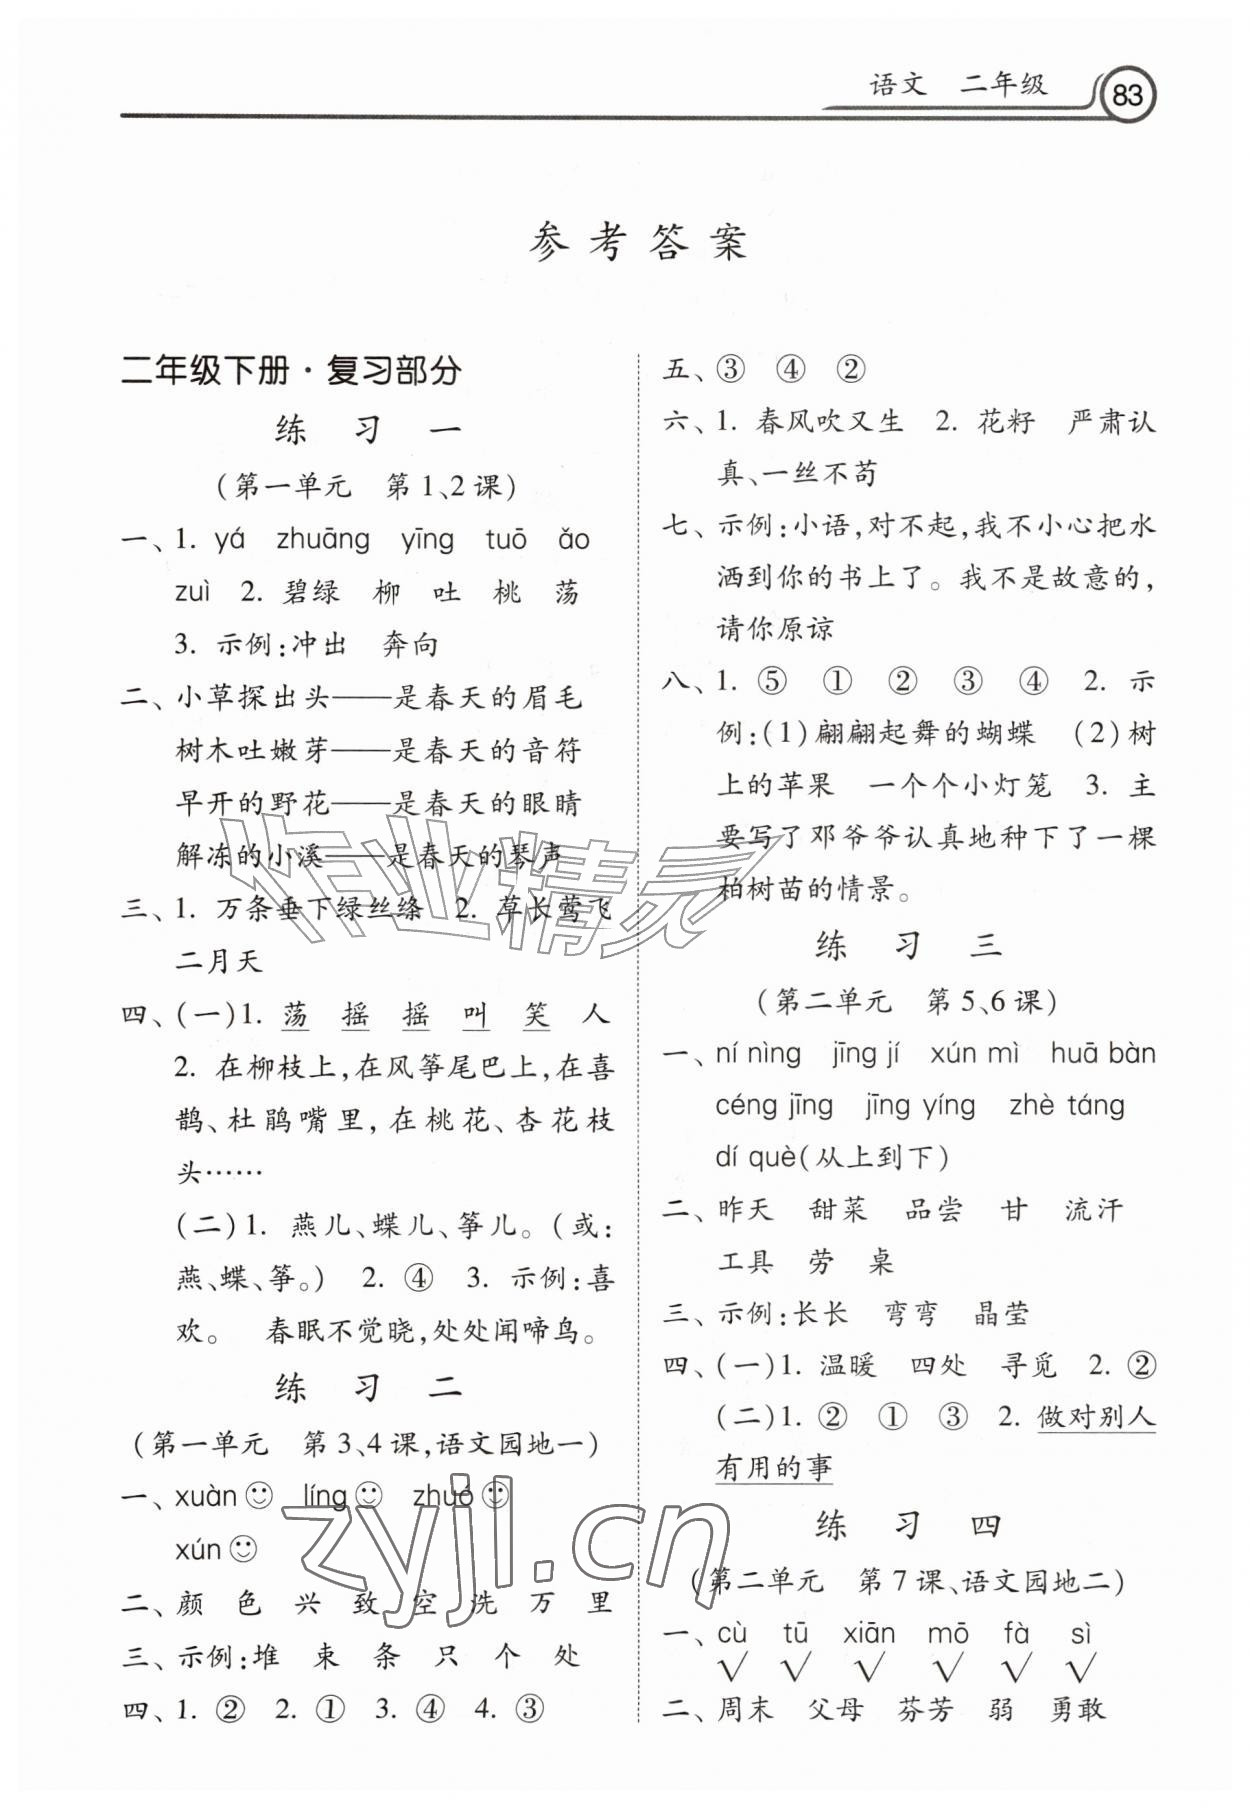 语文 二年级
83
参考答案
二年级下册·复习部分
练 习 一
(第一单元 第1、2课)
一、1. yá zhuāng yīng tuō ǎo
zuì 2. 碧绿 柳 吐 桃 荡
3. 示例:冲出 奔向
二、小草探出头——是春天的眉毛
树木吐嫩芽——是春天的音符
早开的野花——是春天的眼睛
解冻的小溪——是春天的琴声
三、1. 万条垂下绿丝绦 2. 草长莺飞
二月天
四、(一)1. 荡 摇 摇 叫 笑 人
2. 在柳枝上,在风筝尾巴上,在喜
鹊、杜鹃嘴里,在桃花、杏花枝
头……
(二)1. 燕儿、蝶儿、筝儿。(或:
燕、蝶、筝。) 2. ④ 3. 示例:喜
欢。 春眠不觉晓,处处闻啼鸟。
练 习 二
(第一单元 第3、4课,语文园地一)
一、xuàn☺ líng☺ zhuó☺
xún☺
二、颜 色 兴 致 空 洗 万 里
三、示例:堆 束 条 只 个 处
四、1. ② 2. ① 3. ④ 4. ③
五、③ ④ ②
六、1. 春风吹又生 2. 花籽 严肃认
真、一丝不苟
七、示例:小语,对不起,我不小心把水
洒到你的书上了。我不是故意的,
请你原谅
八、1. ⑤ ① ② ③ ④ 2. 示
例:(1)翩翩起舞的蝴蝶 (2)树
上的苹果 一个个小灯笼 3. 主
要写了邓爷爷认真地种下了一棵
柏树苗的情景。
练 习 三
(第二单元 第5、6课)
一、ní nìng jīng jí xún mì huā bàn
céng jīng jīng yíng zhè táng
dí què(从上到下)
二、昨天 甜菜 品尝 甘 流汗
工具 劳 桌
三、示例:长长 弯弯 晶莹
四、(一)1. 温暖 四处 寻觅 2. ②
(二)1. ② ① ③ 2. 做对别人
有用的事
练 习 四
(第二单元 第7课、语文园地二)
一、cù tū xiān mō fà sì
√ √ √ √ √ √
二、周末 父母 芬芳 弱 勇敢
作业精灵
zyjl.cn